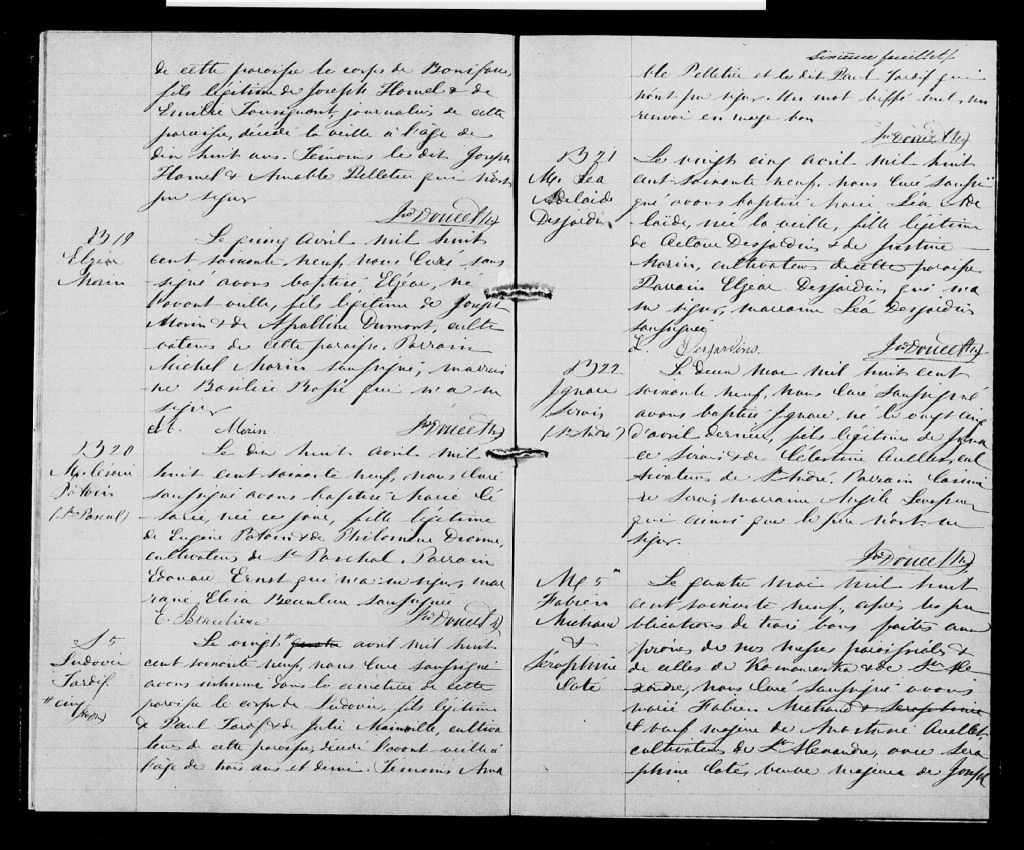 de cette paroisse le corps de Boniface,
fils légitime de Joseph Hamel & de
Emilie Tousignant, journalier de cette
paroisse, décédé la veille à l'âge de
dix huit ans. Témoins le dit Joseph
Hamel & Amable Pelletier qui n'ont
pu signer
Jos Doucet Ptr
B 19
Elzear
Morin
Le cinq Avril mil huit
cent soixante neuf, nous Curé sous
signé avons baptisé Elzéar, né
l'avant veille, fils légitime de Joseph
Morin & de Apolline Dumont, culti
vateurs de cette paroisse. Parrain
Michel Morin soussigné, marrai
ne Basilice qui n'a su
signer
Morin Jos Doucet Ptr
B 20
Potvin
(St Pascal)
Le dix huit Avril mil
huit cent soixante neuf, nous Curé
soussigné avons baptisé Marie Cé
sarie, née ce jour, fille légitime
de Eugène Potvin & de Philomène Dionne,
cultivateurs de St Paschal. Parrain
Edouard Ernst qui n'a su signer, mar
raine Elisa Beaulieu soussignée
E. Beaulieu Jos Doucet Ptr
S 5
Ludovic
Tardif
" cinq
Le vingt " quatre avril mil huit
cent soixante neuf, nous Curé soussigné
avons inhumé dans le cimetière de cette
paroisse le corps de Ludovic, fils légitime
de Paul Tardif & de Julie Mainville, cultiva
teurs de cette paroisse, décédé l'avant veille à
l'âge de trois ans et demi. Témoins Ama
Sixième feuillet
ble Pelletier et le dit Paul Tardif qui
n'ont pu signer. Un mot biffé nul, un
renvoi en marge bon
Jos Doucet Ptr
B 21
M. Léa
Adelaide
Desjardins
Le vingt cinq avril mil huit
cent soixante neuf, nous Curé soussi
gné avons baptisé Marie Léa Adé
laïde, née la veille, fille légitime
de Desjardins & de Justine
Morin, cultivateurs de cette paroisse
Parrain Elzear Desjardins qui n'a
su signer, marraine Léa Desjardins
soussignée
L. Desjardins. Jos Doucet Ptr
B 22
Ignace
Sirois
(St André)
Le Deux mai mil huit cent
soixante neuf, nous Curé soussigné
avons baptisé Ignace, né le vingt cinq
d'avril dernier, fils légitime de Igna
ce Sirois & de Célestine Ouellet, cul
tivateurs de St André. Parrain Casimi
re Sirois, marraine Levasseur
qui ainsi que le père n'ont su
signer.
Jos Doucet Ptr
M 5
Fabien
Michaud
&
Séraphine
Coté
Le quatre mai mil huit
cent soixante neuf, après la pu
blications de trois bans faites aux
prônes de nos messes paroissiales &
de celles de Kamouraska & de St Ale
xandre, nous Curé soussigné avons
marié Fabien Michaud & Séraphine
& veuf majeur de Ouellet,
cultivateur de St Alexandre, avec Séra
phine Coté, veuve majeure de Joseph